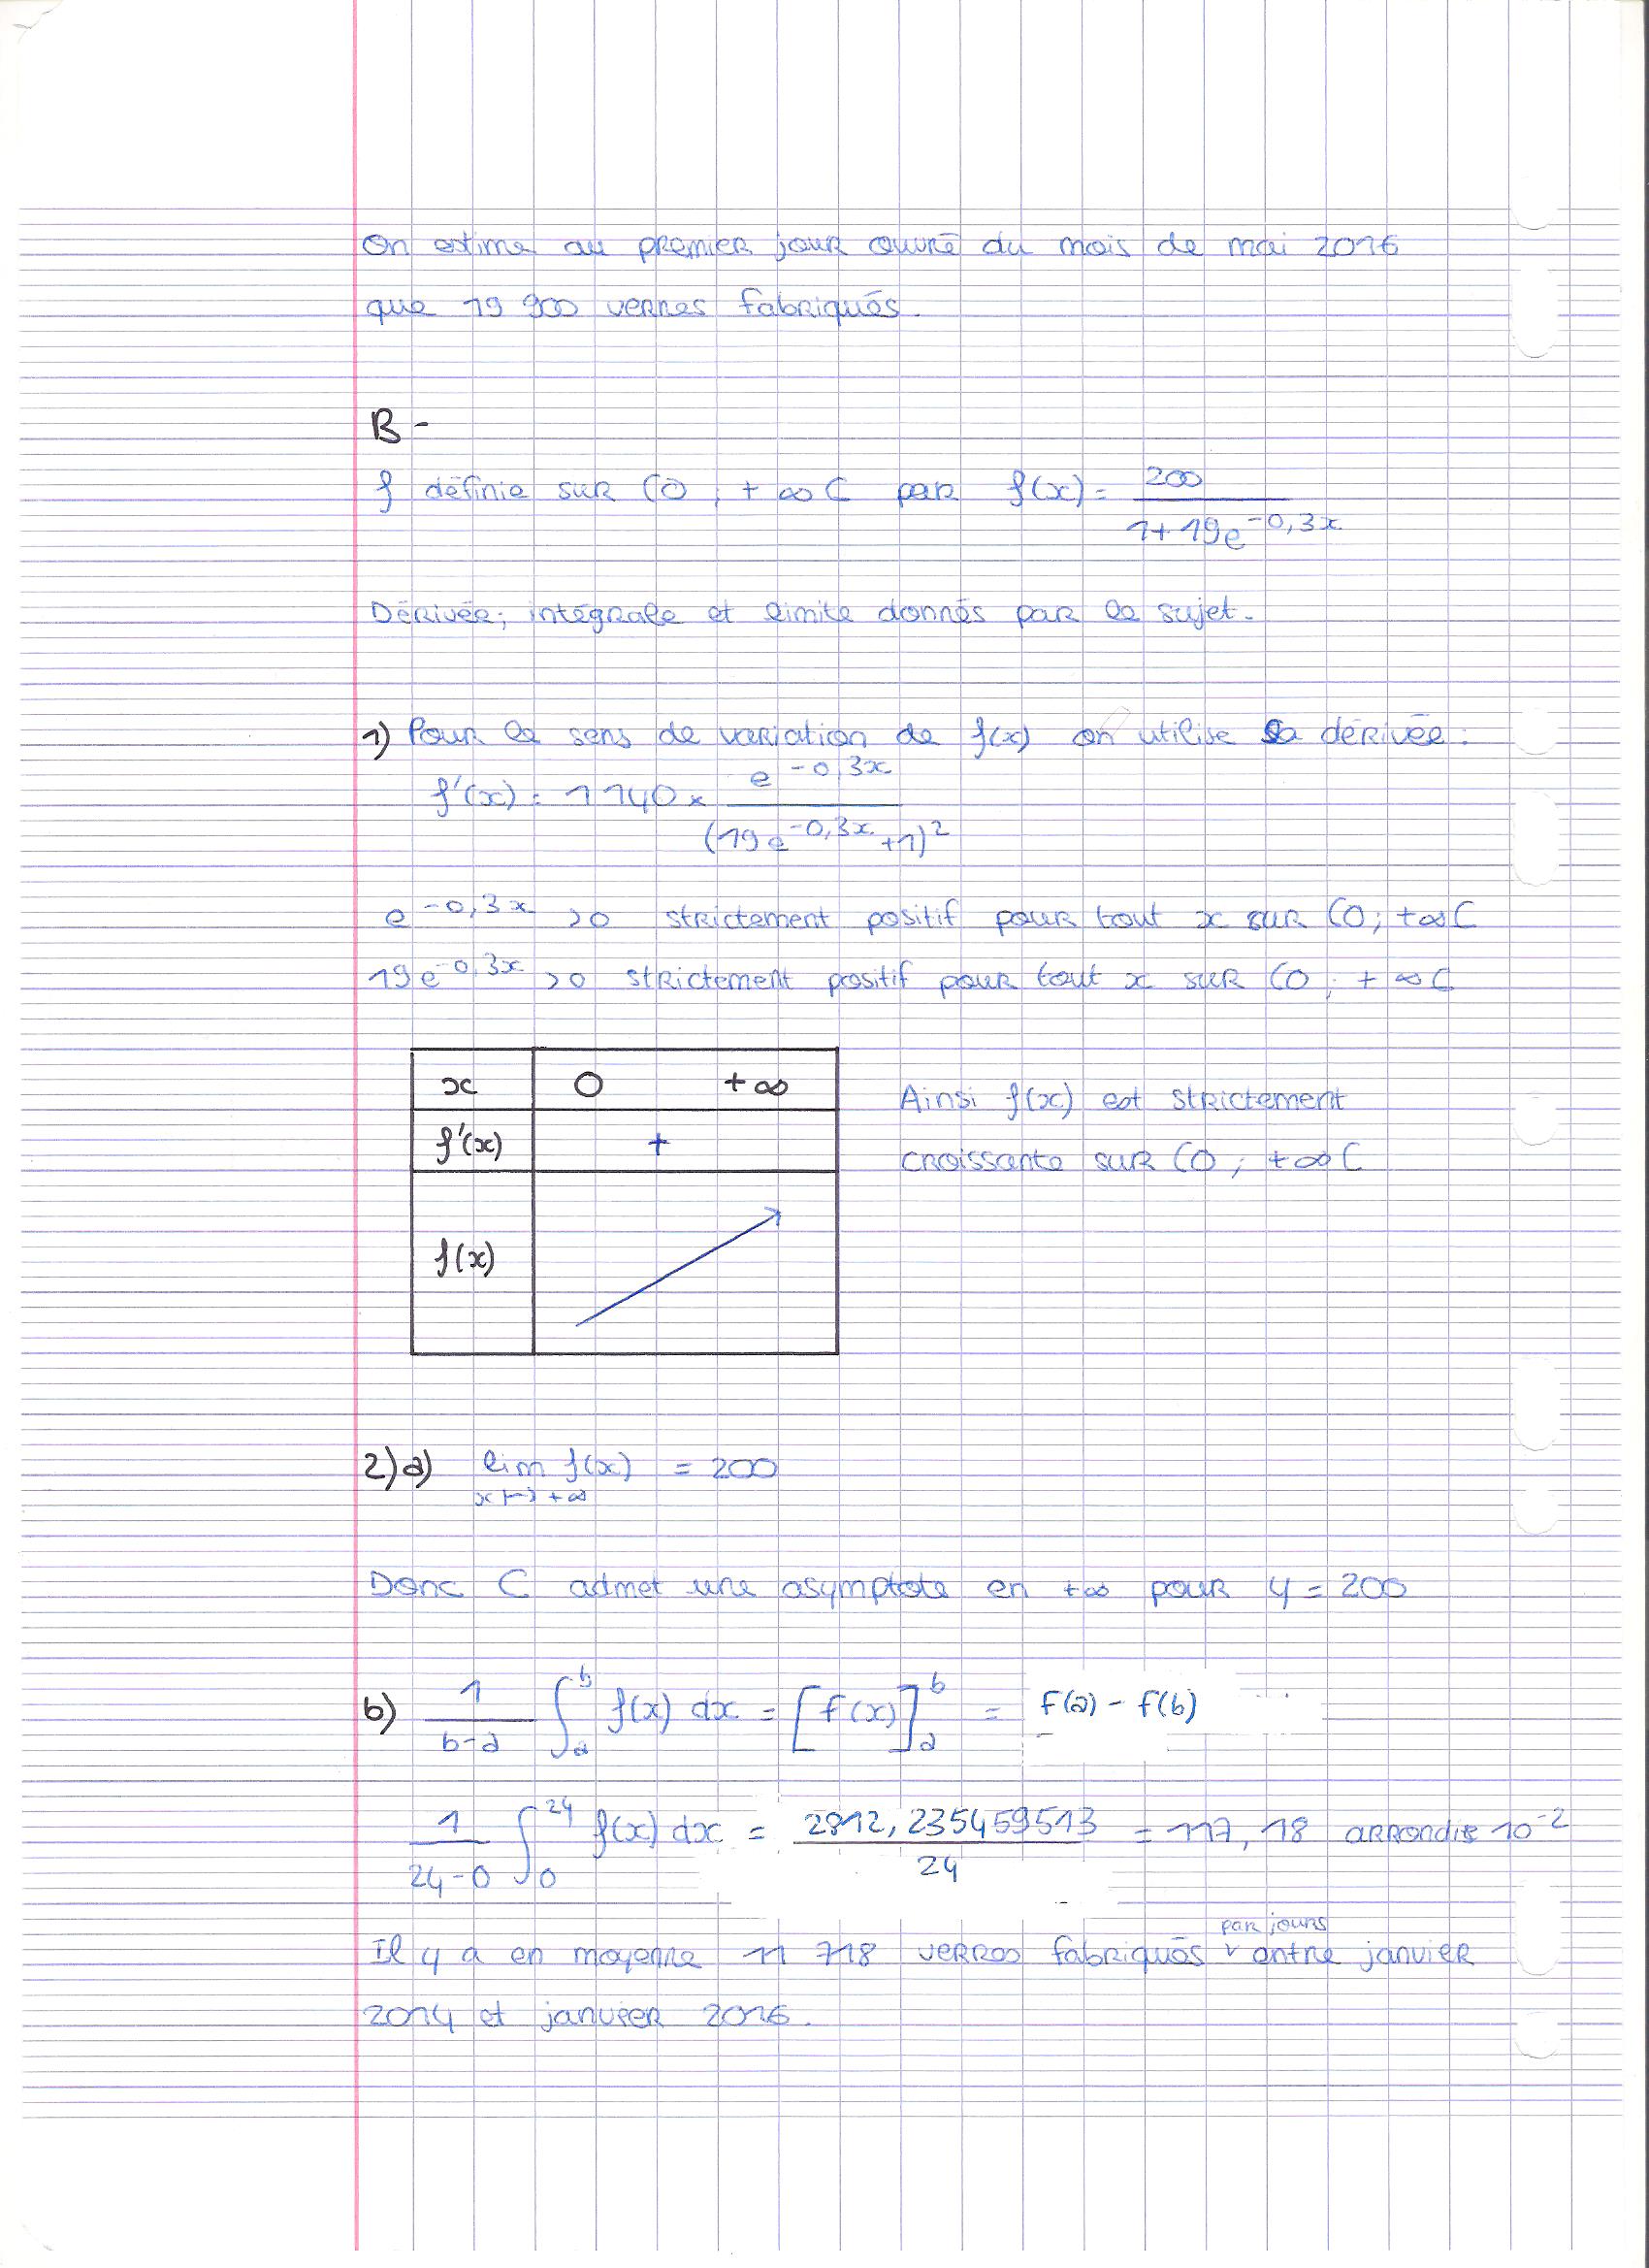 On estime au premier jour ouvré du mois de mai 2016
que 19 900 verres fabriqués.
B -
f définie sur [0 ; + ∞ [ par f(x) = 200 / (1 + 19e^-0,3x)
Dérivée, intégrale et limite donnés par le sujet.
1) Pour le sens de variation de f(x) on utilise sa dérivée :
f'(x) = 1140 × e^-0,3x / (19e^-0,3x + 1)²
e^-0,3x >0 strictement positif pour tout x sur [0 ; +∞[
19e^-0,3x >0 strictement positif pour tout x sur [0 ; + ∞[
x 0 +∞
f'(x) +
f(x)
Ainsi f(x) est strictement
croissante sur [0 ; +∞[
2) a) lim f(x) = 200
x↦ +∞
Donc C admet une asymptote en +∞ pour y = 200
b) 1/(b-a) ∫_a^b f(x) dx = [F(x)]_a^b = F(a) - F(b)
1/(24-0) ∫_0^24 f(x) dx = 2812,235459513 / 24 = 117,18 arrondie 10^-2
par jours
Il y a en moyenne 11 718 verres fabriqués v entre janvier
2014 et janvier 2016.